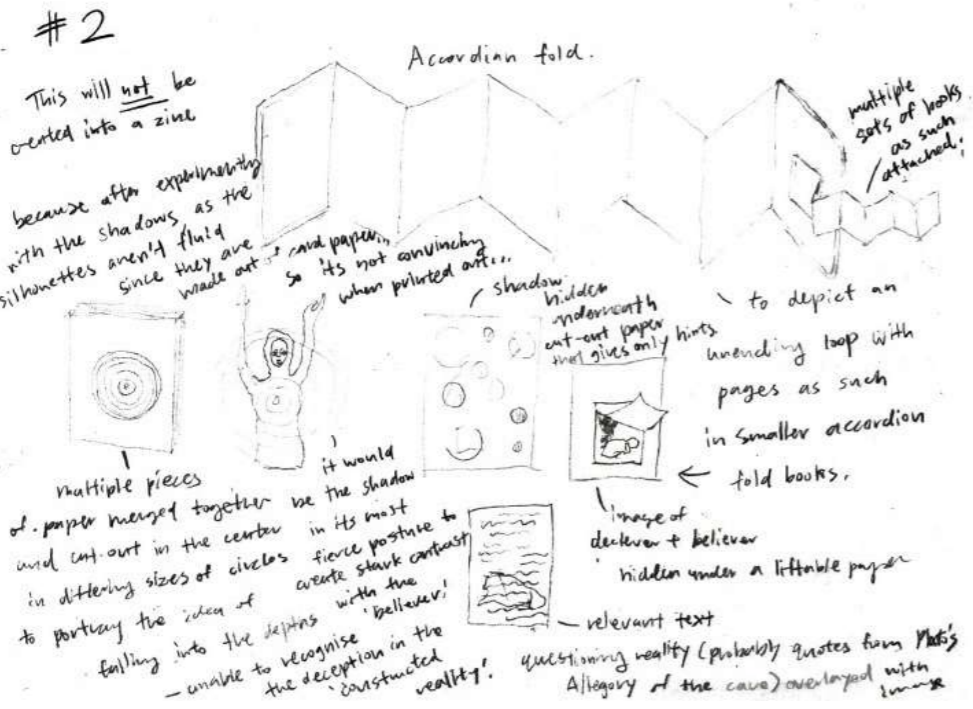 #2
Accordian fold.
This will not be
created into a zine
because after experimenting
with the shadows, as the
silhouettes aren't fluid
since they are
made out of card paper,,
so its not convincing
when printed out...
multiple
sets of books
as such
attached.
to depict an
unending loop with
pages as such
in smaller accordion
fold books.
shadow
hidden
underneath
cut-out paper
that gives only hints.
multiple pieces
of paper merged together
and cut-out in the center
in differing sizes of circles
to portray the idea of
falling into the depths
— unable to recognise
the deception in the
'constructed
reality'.
it would
be the shadow
in its most
fierce posture to
create stark contrast
with the
'believer'
image of
deceiver + believer
hidden under a liftable paper
— relevant text
questioning reality (probably quotes from Plato's
Allegory of the cave) overlayed with
image